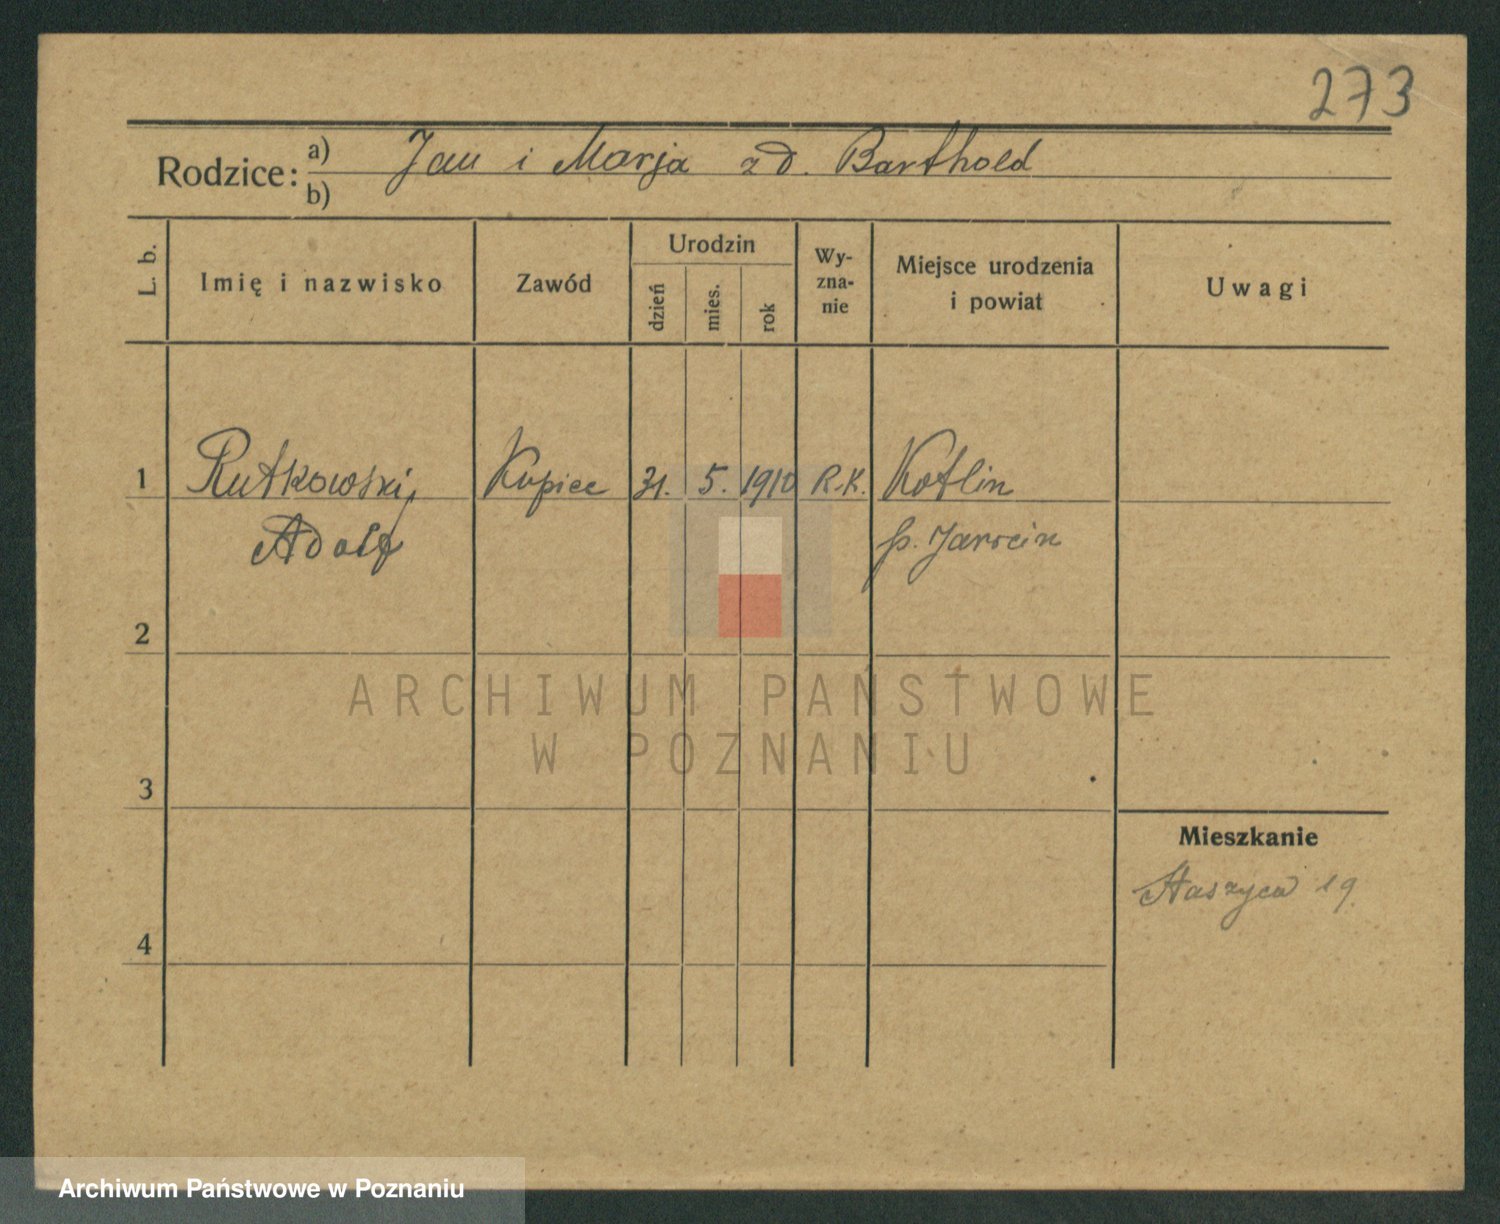 273
Rodzice: a) Jan i Marja zd. Barthold
b)
L. b.
Imię i nazwisko
Zawód
Urodzin
dzień
mies.
rok
Wy-
zna-
nie
Miejsce urodzenia
i powiat
Uwagi
1 Rutkowski, Kupiec 31. 5. 1910 R.K. Kotlin
Adolf p. Jarocin
2
3
4
Mieszkanie
Staszyca 19
ARCHIWUM PAŃSTWOWE
W POZNANIU
Archiwum Państwowe w Poznaniu